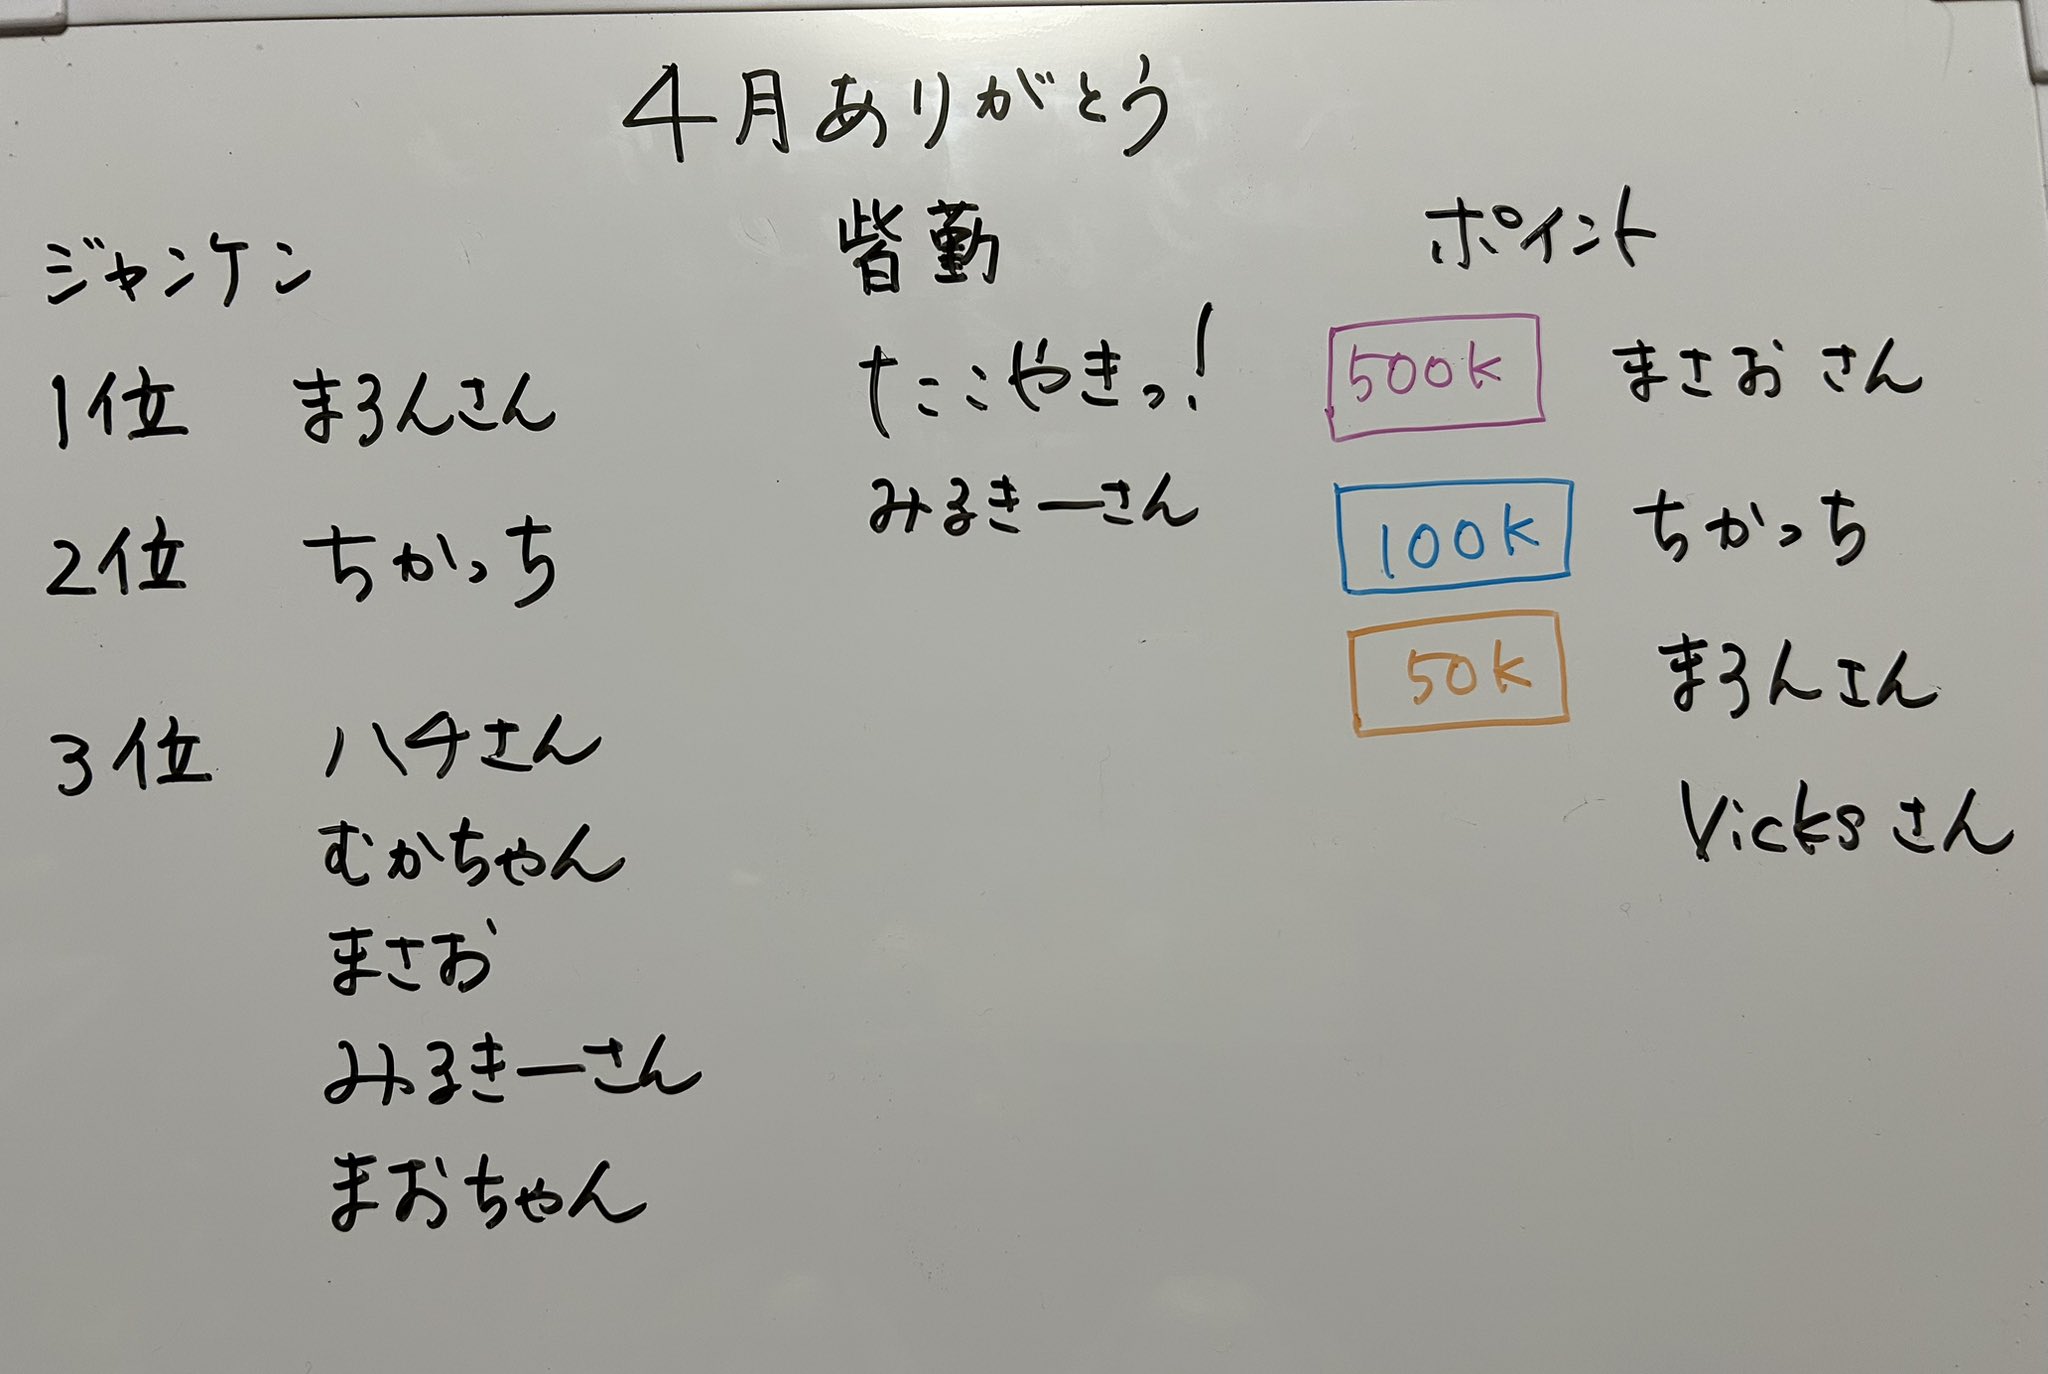 4月ありがとう
ジャンケン
1位 まろんさん
2位 ちかっち
3位 ハチさん
むかちゃん
まさお
みるきーさん
まおちゃん
皆勤
たこやきっ!
みるきーさん
ポイント
500K まさおさん
100K ちかっち
50K まろんさん
Vicksさん